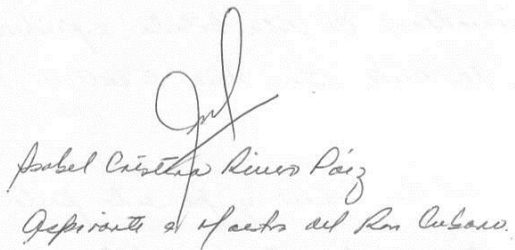 Isabel Cristina Rivero Páiz
Aspirante a Maestra del Ron Cubano.